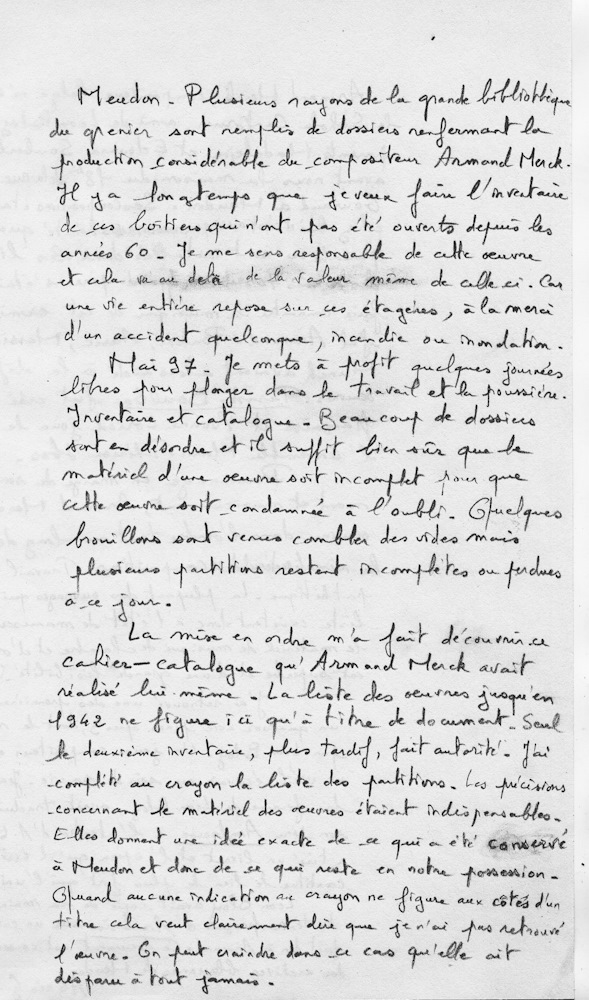 Meudon - Plusieurs rayons de la grande bibliothèque
du grenier sont remplis de dossiers renfermant la
production considérable du compositeur Armand Merck.
Il y a longtemps que je veux faire l'inventaire
de ces boîtiers qui n'ont pas été ouverts depuis les
années 60 - Je me sens responsable de cette oeuvre
et cela va au delà de la valeur même de celle ci. Car
une vie entière repose sur ces étagères, à la merci
d'un accident quelconque, incendie ou inondation.
Mai 97 - Je mets à profit quelques journées
libres pour plonger dans le travail et la poussière.
Inventaire et catalogue - Beaucoup de dossiers
sont en désordre et il suffit bien sûr que le
matériel d'une oeuvre soit incomplet pour que
cette oeuvre soit condamnée à l'oubli - Quelques
brouillons sont venus combler des vides mais
plusieurs partitions restent incomplètes ou perdues
à ce jour.
La mise en ordre m'a fait découvrir ce
cahier-catalogue qu'Armand Merck avait
réalisé lui-même. La liste des oeuvres jusqu'en
1942 ne figure ici qu'à titre de document - Seul
le deuxième inventaire, plus tardif, fait autorité. J'ai
complété au crayon la liste des partitions. Les précisions
concernant le matériel des oeuvres étaient indispensables.
Elles donnent une idée exacte de ce qui a été conservé
à Meudon et donc de ce qui reste en notre possession -
Quand aucune indication au crayon ne figure aux côtés d'un
titre cela veut clairement dire que je n'ai pas retrouvé
l'œuvre. On peut craindre dans ce cas qu'elle ait
disparu à tout jamais.